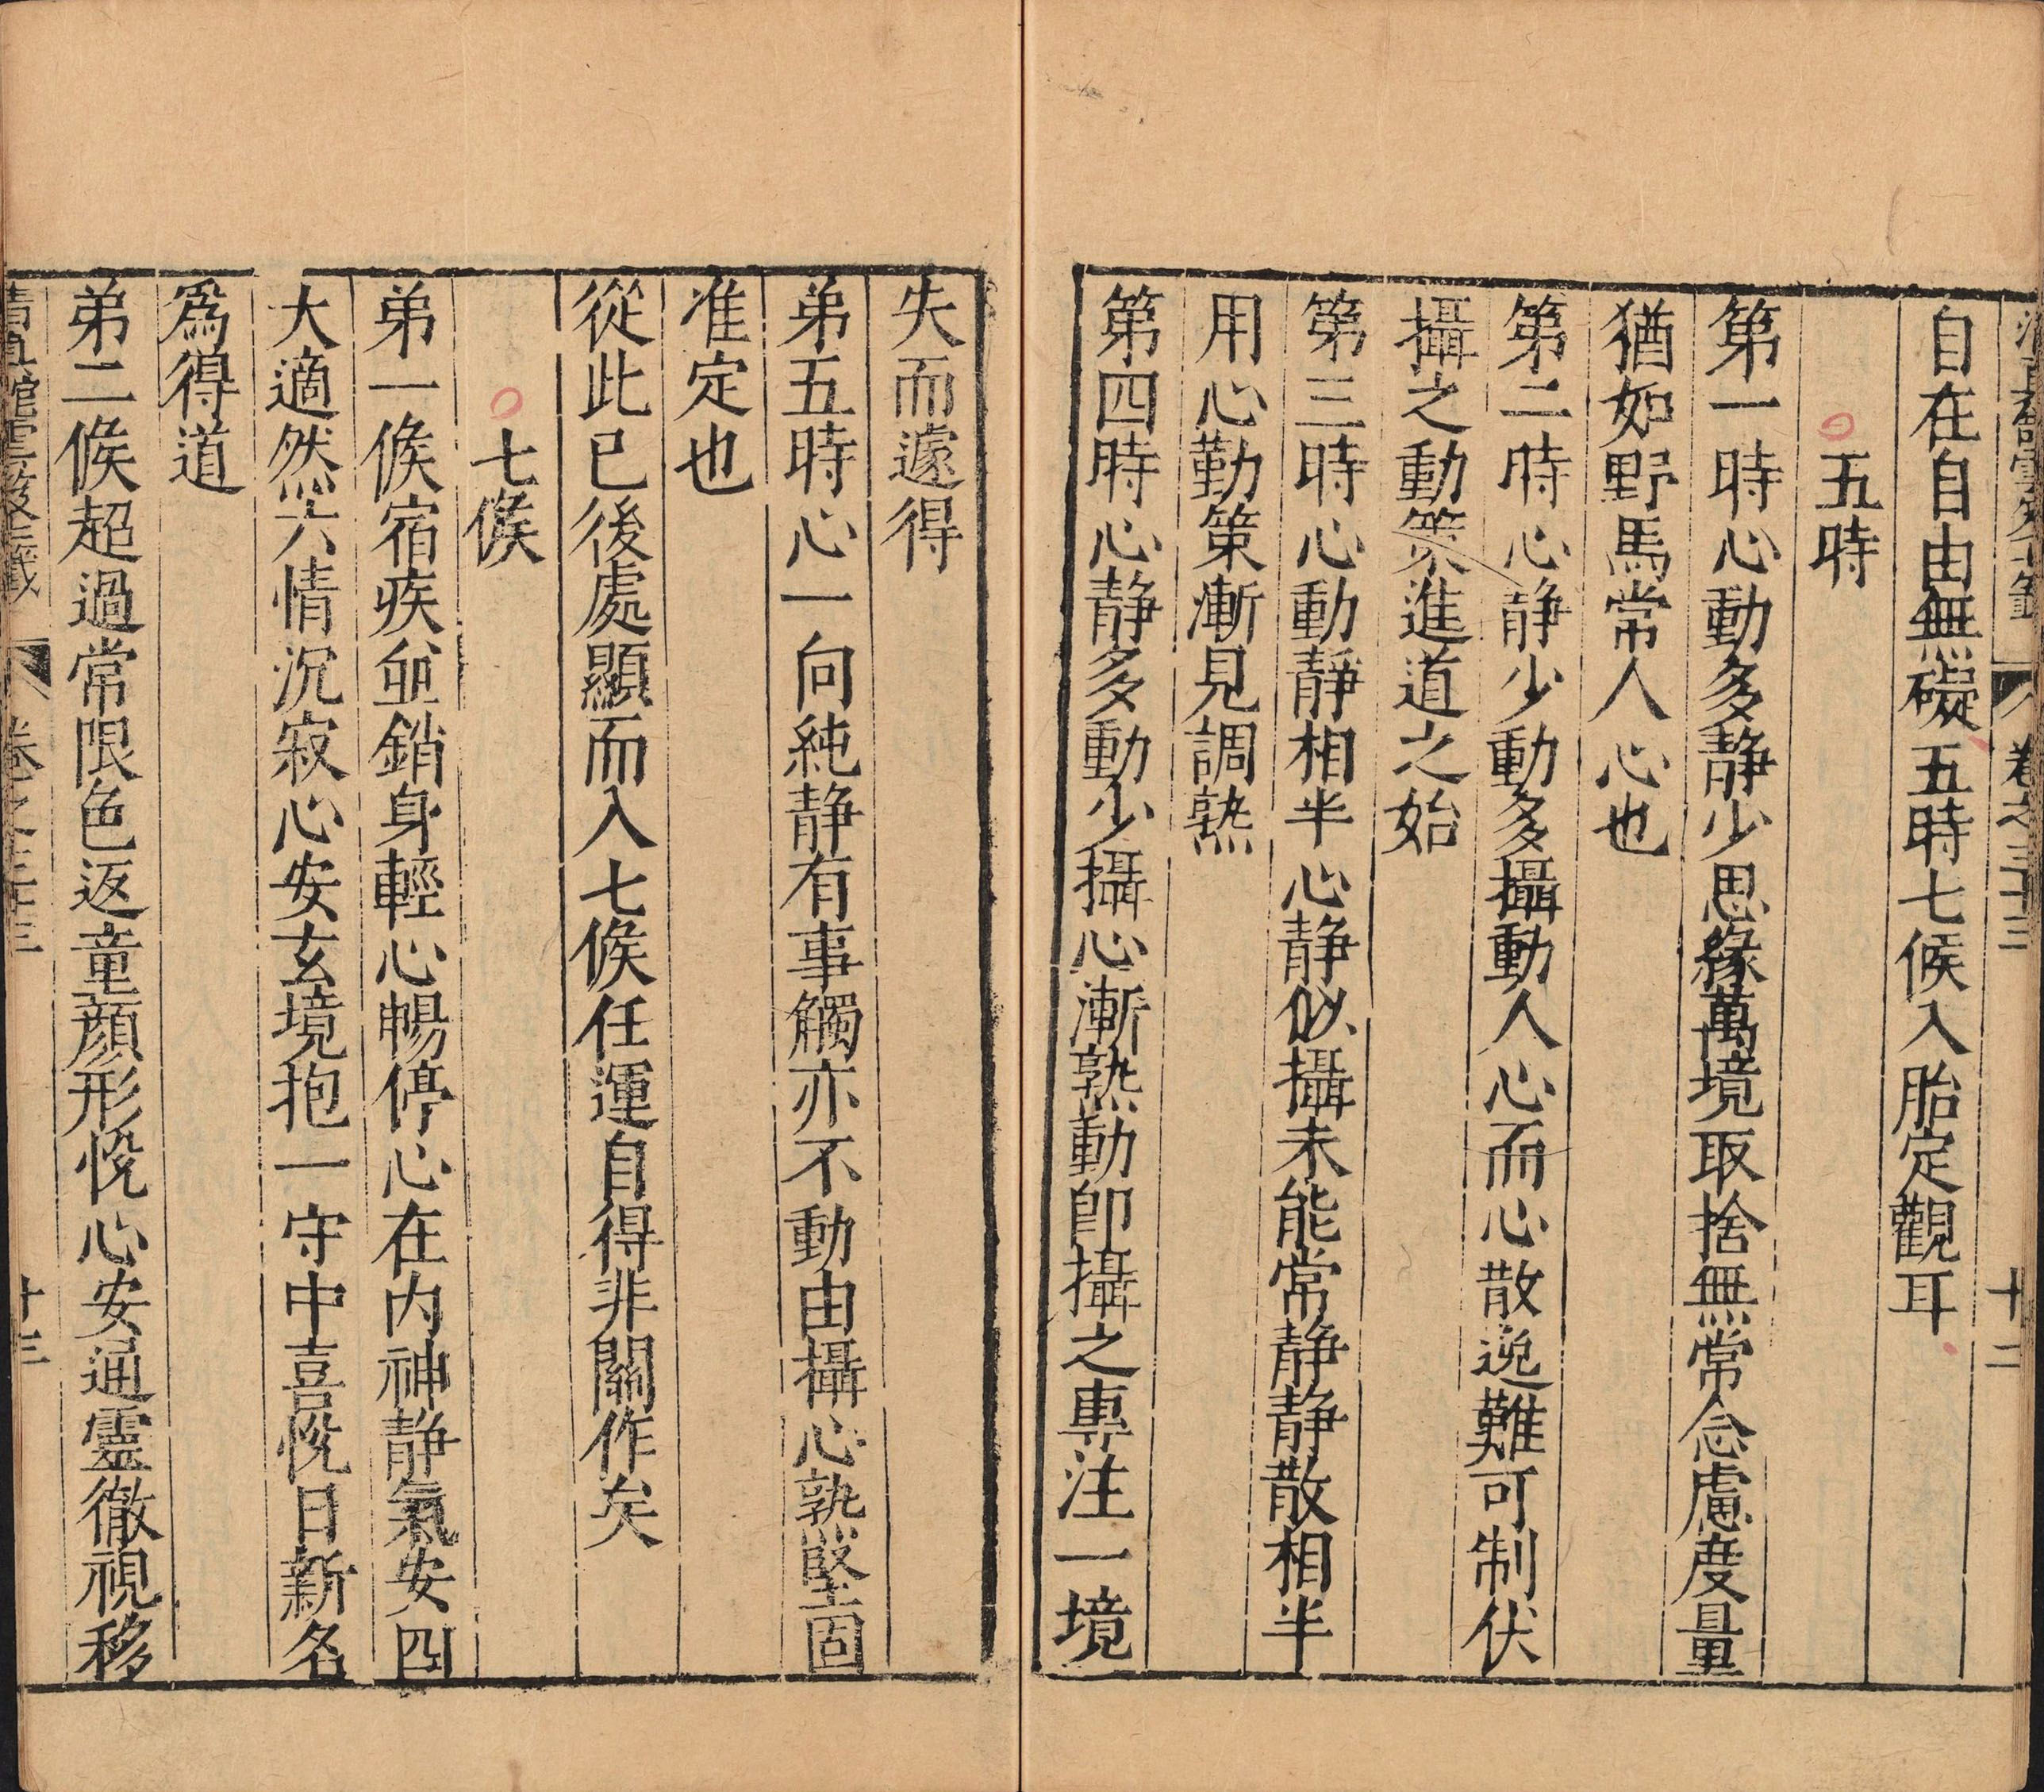 清真館雲笈七籤 卷之三十三 十二
自在自由無礙五時七候入胎定觀耳
五時
第一時心動多静少思緣萬境取捨無常念慮度量
猶如野馬常人心也
第二時心静少動多攝動人心而心散逸難可制伏
攝之動策進道之始
第三時心動靜相半心静似攝未能常静静散相半
用心勤策漸見調熟
第四時心静多動少攝心漸熟動卽攝之專注一境
失而遽得
弟五時心一向純静有事觸亦不動由攝心熟堅固
准定也
從此已後處顯而入七候任運自得非關作矣
七候
弟一候宿疾並銷身輕心暢停心在内神静氣安四
大適然六情沉寂心安玄境抱一守中喜悅日新名
為得道
弟二候超過常限色返童顔形悅心安通靈徹視移
清真館雲笈七籤 卷之三十三 十三